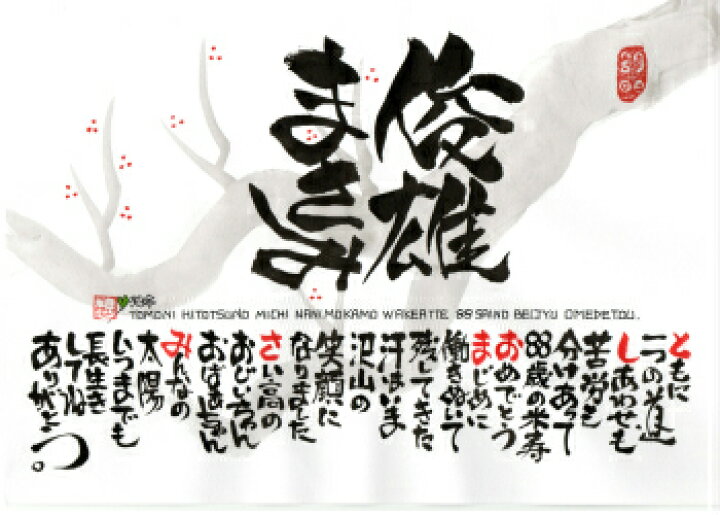 俊雄
まさみ
TOMONI HITOTSUNO MICHI NANIMOKAMO WAKEATTE 88 SAINO BEIJYU OMEDETOU.
ともに
一つの道
しあわせも
苦労も
分けあって
88歳の米寿
おめでとう
まじめに
働きぬいて
残してきた
汗はいま
沢山の
笑顔に
なりました
さい高の
おじいちゃん
おばあちゃん
みんなの
太陽
いつまでも
長生き
してね
ありがとう。